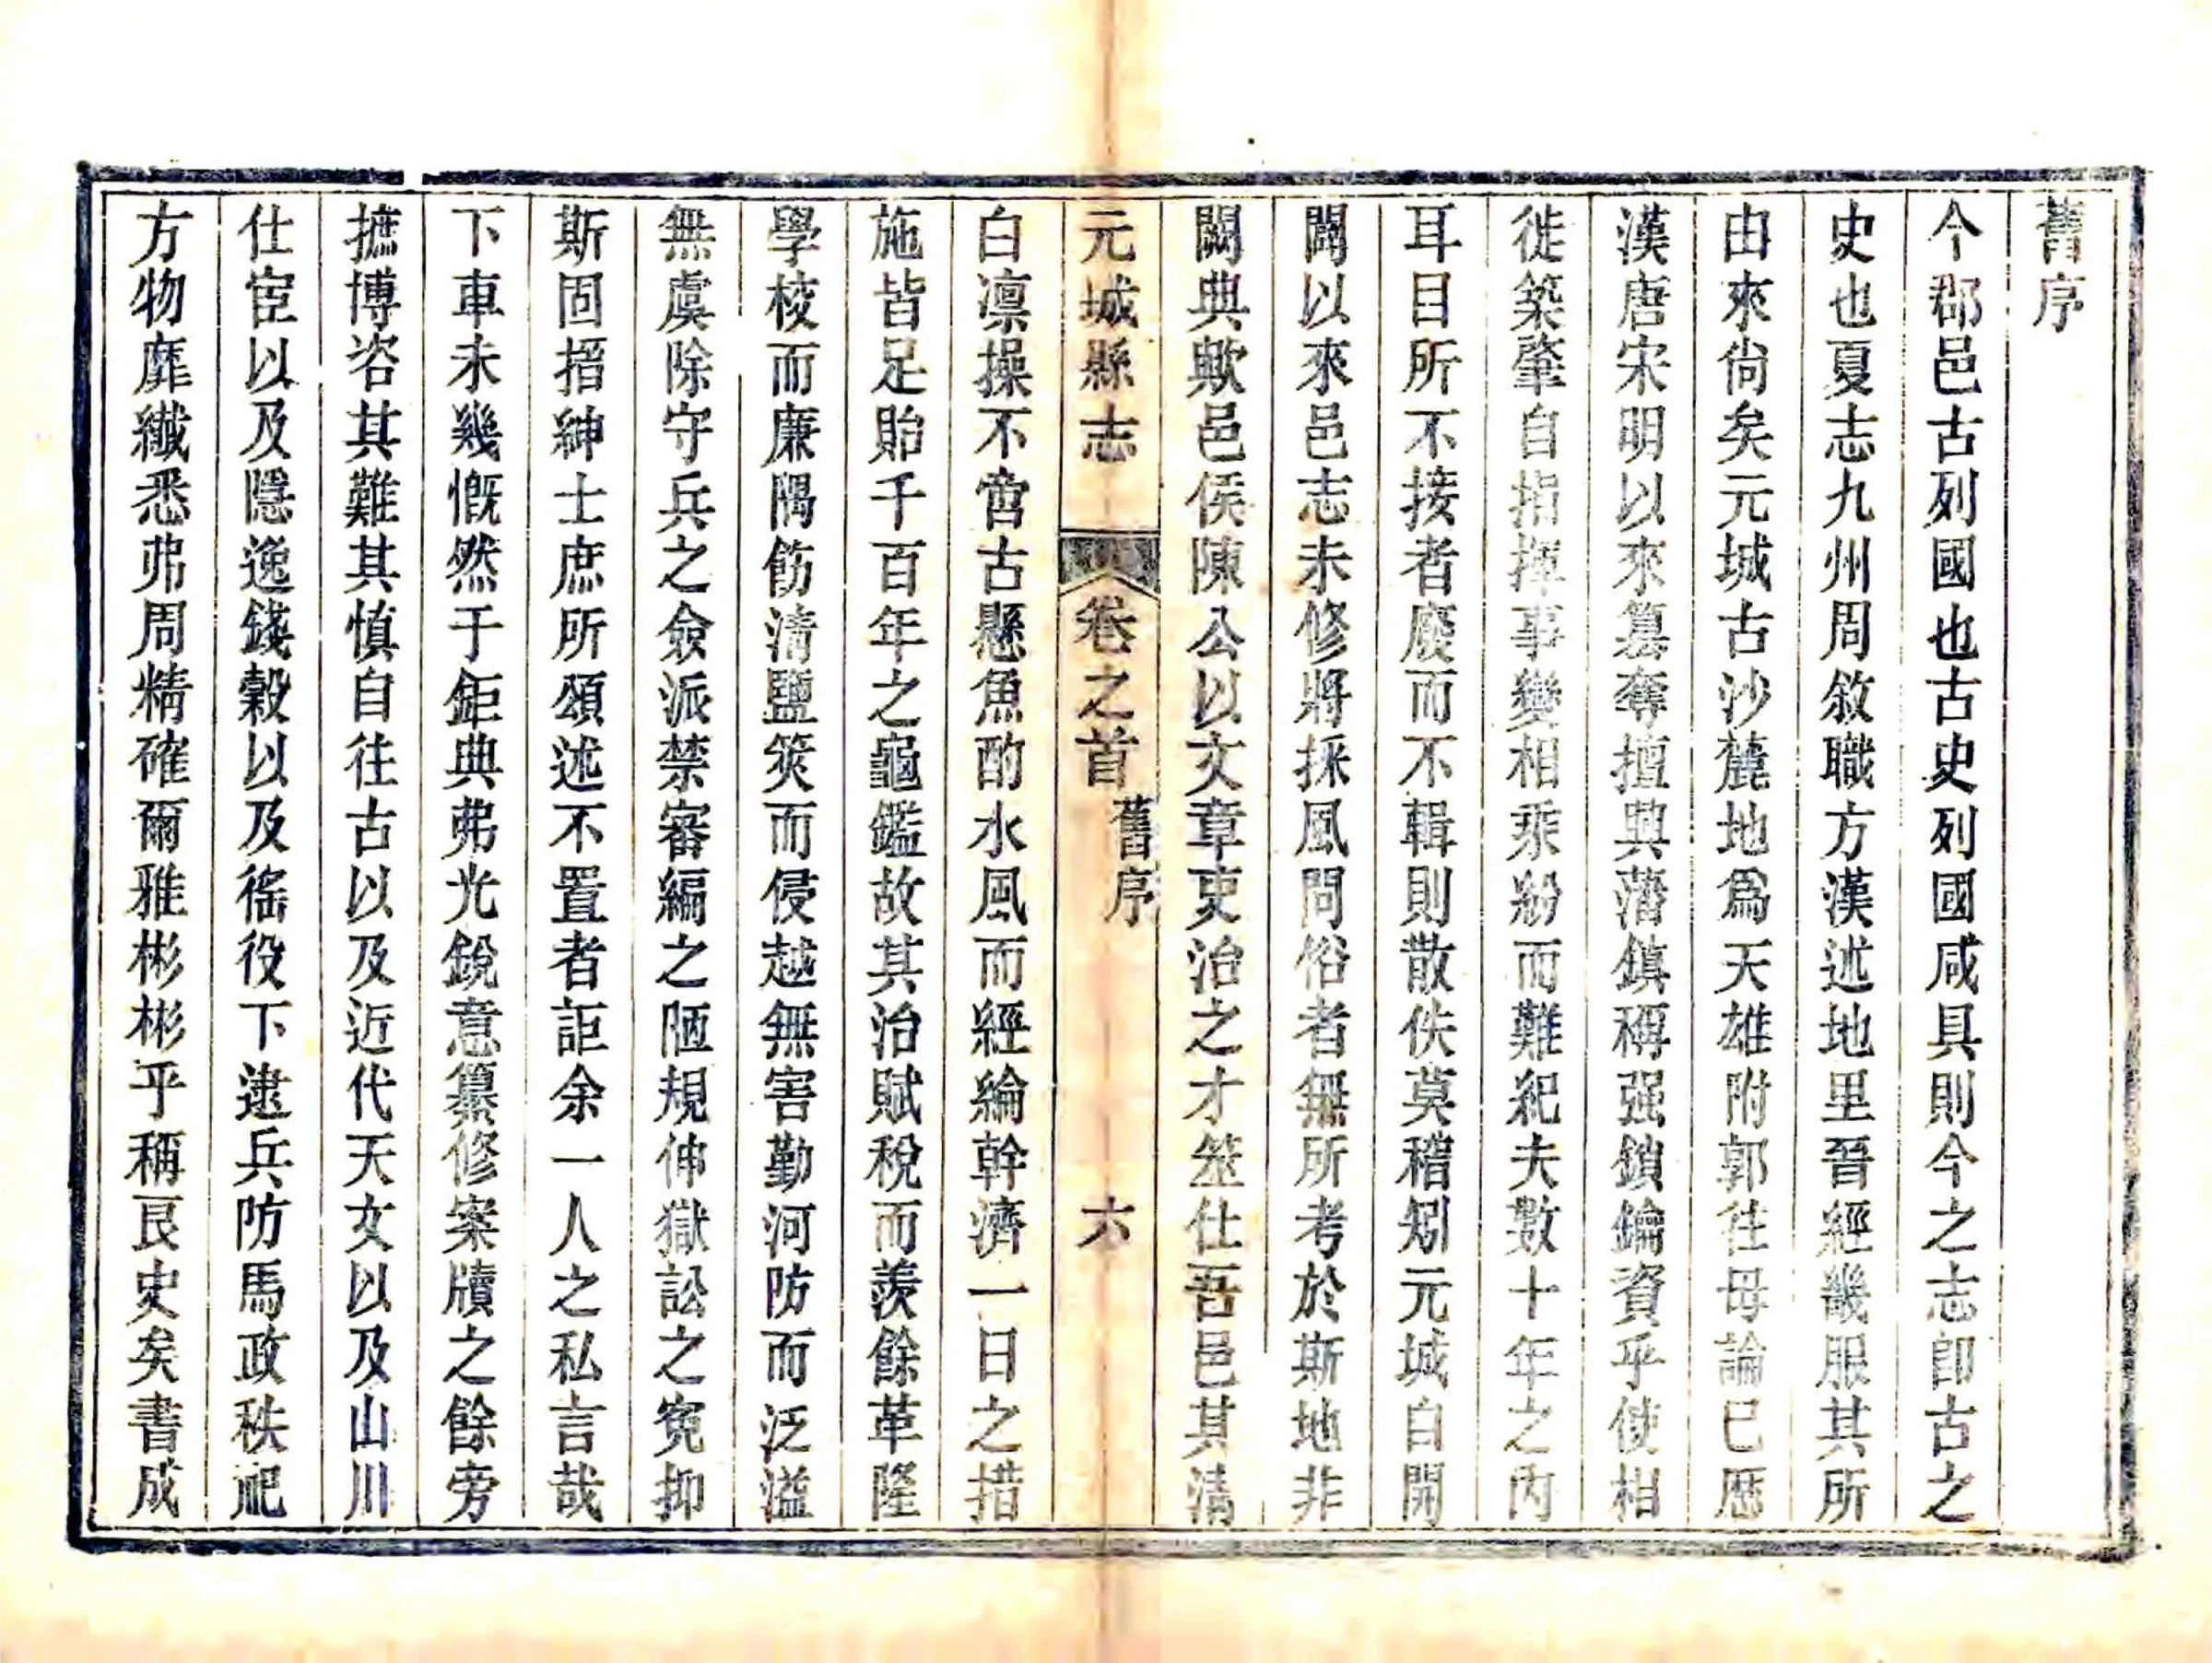 舊序
今郡邑古列國也古史列國咸具則今之志卽古之
史也夏志九州周敘職方漢述地里晉經畿服其所
由來尙矣元城古沙麓地爲天雄附郭徃毋論已歷
漢唐宋明以來簒奪擅興藩鎮稱强鎖鑰資乎使相
徙築肇自指揮事變相乘紛而難紀夫數十年之內
耳目所不接者廢而不輯則散佚莫稽矧元城自開
闢以來邑志未修將採風問俗者無所考於斯地非
闕典歟邑侯陳公以文章吏治之才筮仕吾邑其淸
元城縣志
卷之首
舊序
六
白凛操不啻古懸魚酌水風而經綸幹濟一日之措
施皆足貽千百年之龜鑑故其治賦稅而羨餘革隆
學校而廉隅飭清鹽筴而侵越無害勤河防而泛溢
無虞除守兵之僉派禁審編之陋規伸獄訟之寃抑
斯固搢紳士庶所頌述不置者詎余一人之私言哉
下車未幾慨然于鉅典弗光銳意纂修案牘之餘旁
摭博咨其難其慎自往古以及近代天女以及山川
仕宦以及隱逸錢穀以及徭役下逮兵防馬政秩祀
方物靡纖悉弗周精確爾雅彬彬乎稱良史矣書成